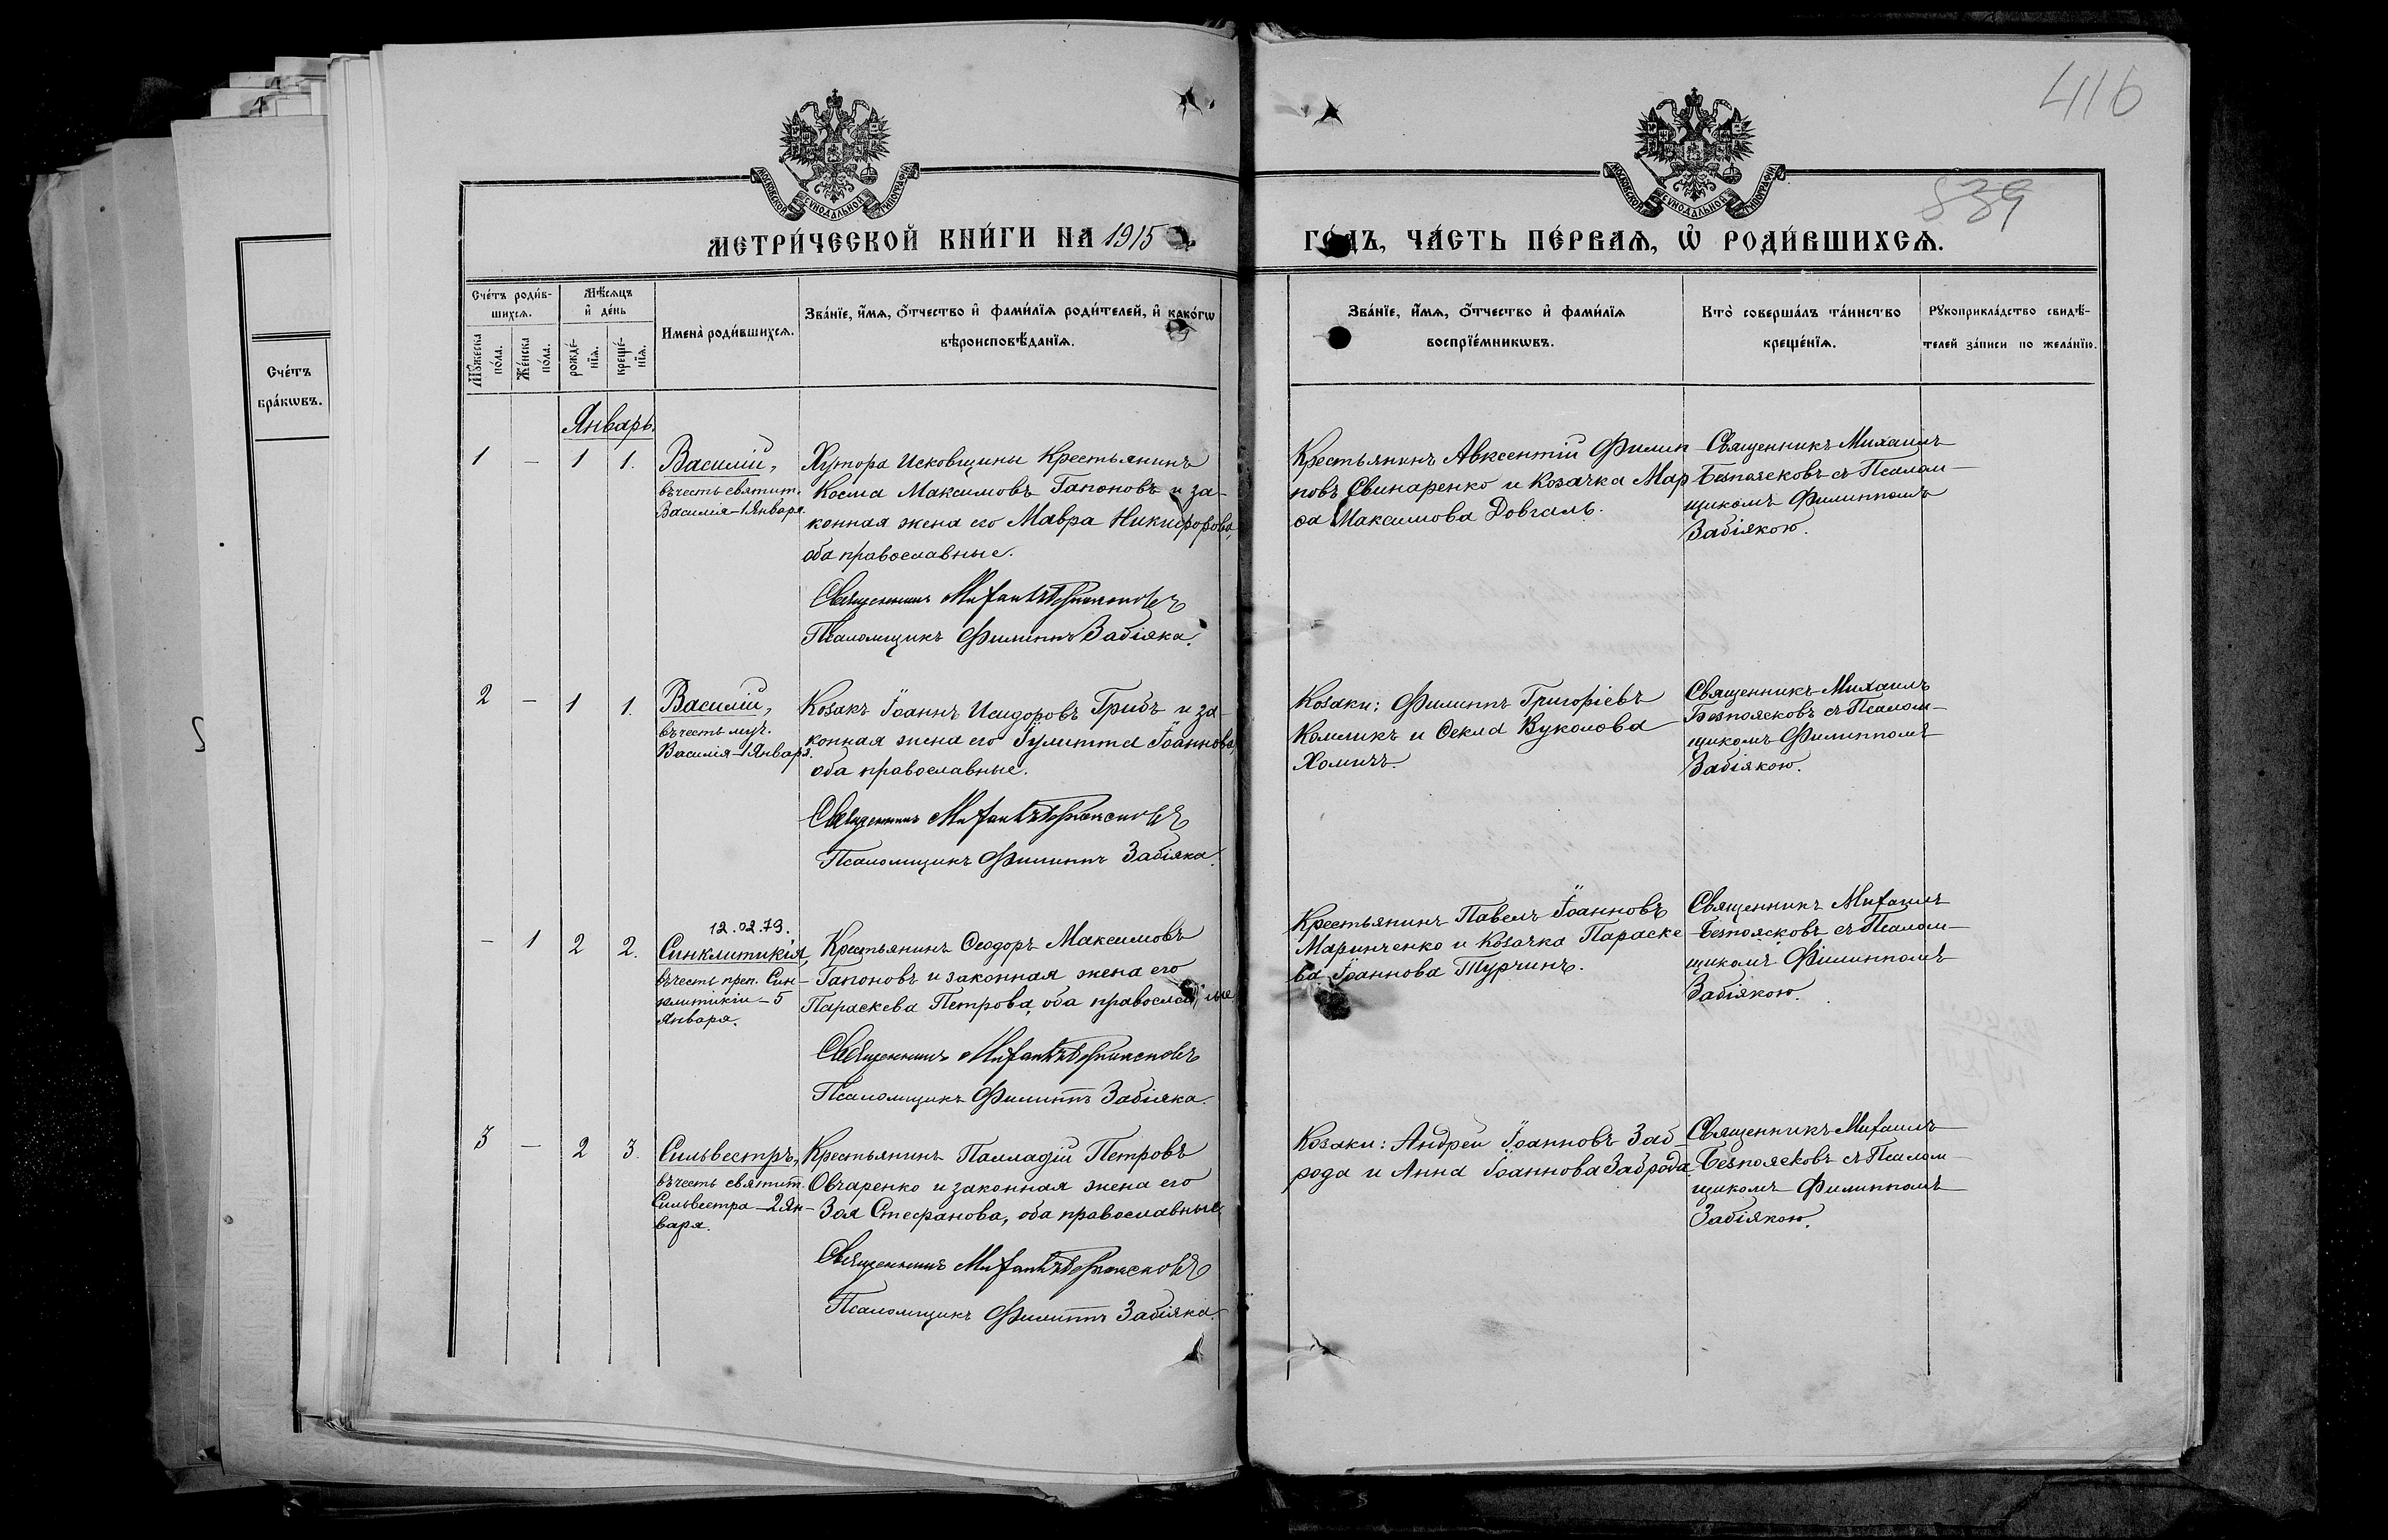 416
839
МОСКОВСКОЙ СѴНОДАЛЬНОЙ ТИПОГРАФІИ
МОСКОВСКОЙ СѴНОДАЛЬНОЙ ТИПОГРАФІИ
МЕТРИ́ЧЕСКОЙ КНИ́ГИ НА 1915
ГО́ДЪ, ЧА́СТЬ ПЕ́РВАѦ, Ѡ҆ РОДИ́ВШИХСѦ.
Сче́тъ
бра́кѡвъ.
Сче́тъ роди́в-
шихсѧ.
Мꙋ́жеска
по́ла.
Же́нска
по́ла.
Мѣ́сѧцъ
и҆ де́нь
рожде́-
нїѧ.
креще́-
нїѧ.
Имена̀ роди́вшихсѧ.
Зва́нїе, и҆́мѧ, ѻ҆́тчество и҆ фами́лїѧ роди́телей, и҆ како́гѡ
вѣроисповѣ́данїѧ.
Зва́нїе, и҆́мѧ, ѻ҆́тчество и҆ фами́лїѧ
воспрїе́мникѡвъ.
Кто̀ соверша́лъ та́инство
креще́нїѧ.
Рꙋкоприкла́дство свидѣ́-
телей за́писи по жела́нїю.
Январь.
1 — 1 1.
Василій,
въ честь святит.
Василія — 1 Января.
Хутора Исковщины Крестьянинъ
Косма Максимовъ Гапоновъ и за-
конная жена его Мавра Никифорова,
оба православные.
Священникъ Михаилъ Безпоясковъ
Псаломщикъ Филиппъ Забіяка.
Крестьянинъ Авксентій Филип
повъ Свинаренко и Козачка Мар
ѳа Максимова Довгаль.
Священникъ Михаилъ
Безпоясковъ съ Псалом-
щикомъ Филиппомъ
Забіякою.
2 — 1 1.
Василій,
въ честь муч.
Василія — 1 Января.
Козакъ Іоаннъ Исидоровъ Грибъ и за-
конная жена его Іулитта Іоаннова,
оба православные.
Священникъ Михаилъ Безпоясковъ
Псаломщикъ Филиппъ Забіяка.
Козаки: Филиппъ Григоріевъ
Комликъ и Ѳекла Вуколова
Хомичъ.
Священникъ Михаилъ
Безпоясковъ съ Псалом-
щикомъ Филиппомъ
Забіякою.
12.02.79.
— 1 2 2.
Синклитикія,
въ честь преп. Син-
клитикіи — 5
Января.
Крестьянинъ Ѳеодоръ Максимовъ
Гапоновъ и законная жена его
Параскева Петрова, оба православные
Священникъ Михаилъ Безпоясковъ
Псаломщикъ Филиппъ Забіяка.
Крестьянинъ Павелъ Іоанновъ
Маринченко и Козачка Параске
ва Іоаннова Турчинъ.
Священникъ Михаилъ
Безпоясковъ съ Псалом-
щикомъ Филиппомъ
Забіякою.
3 — 2 3.
Сильвестръ,
въ честь святит.
Сильвестра — 2 Ян-
варя.
Крестьянинъ Палладій Петровъ
Овчаренко и законная жена его
Зоя Стефанова, оба православные.
Священникъ Михаилъ Безпоясковъ
Псаломщикъ Филиппъ Забіяка.
Козаки: Андрей Іоанновъ Заб-
рода и Анна Іоаннова Заброда.
Священникъ Михаилъ
Безпоясковъ съ Псалом-
щикомъ Филиппомъ
Забіякою.